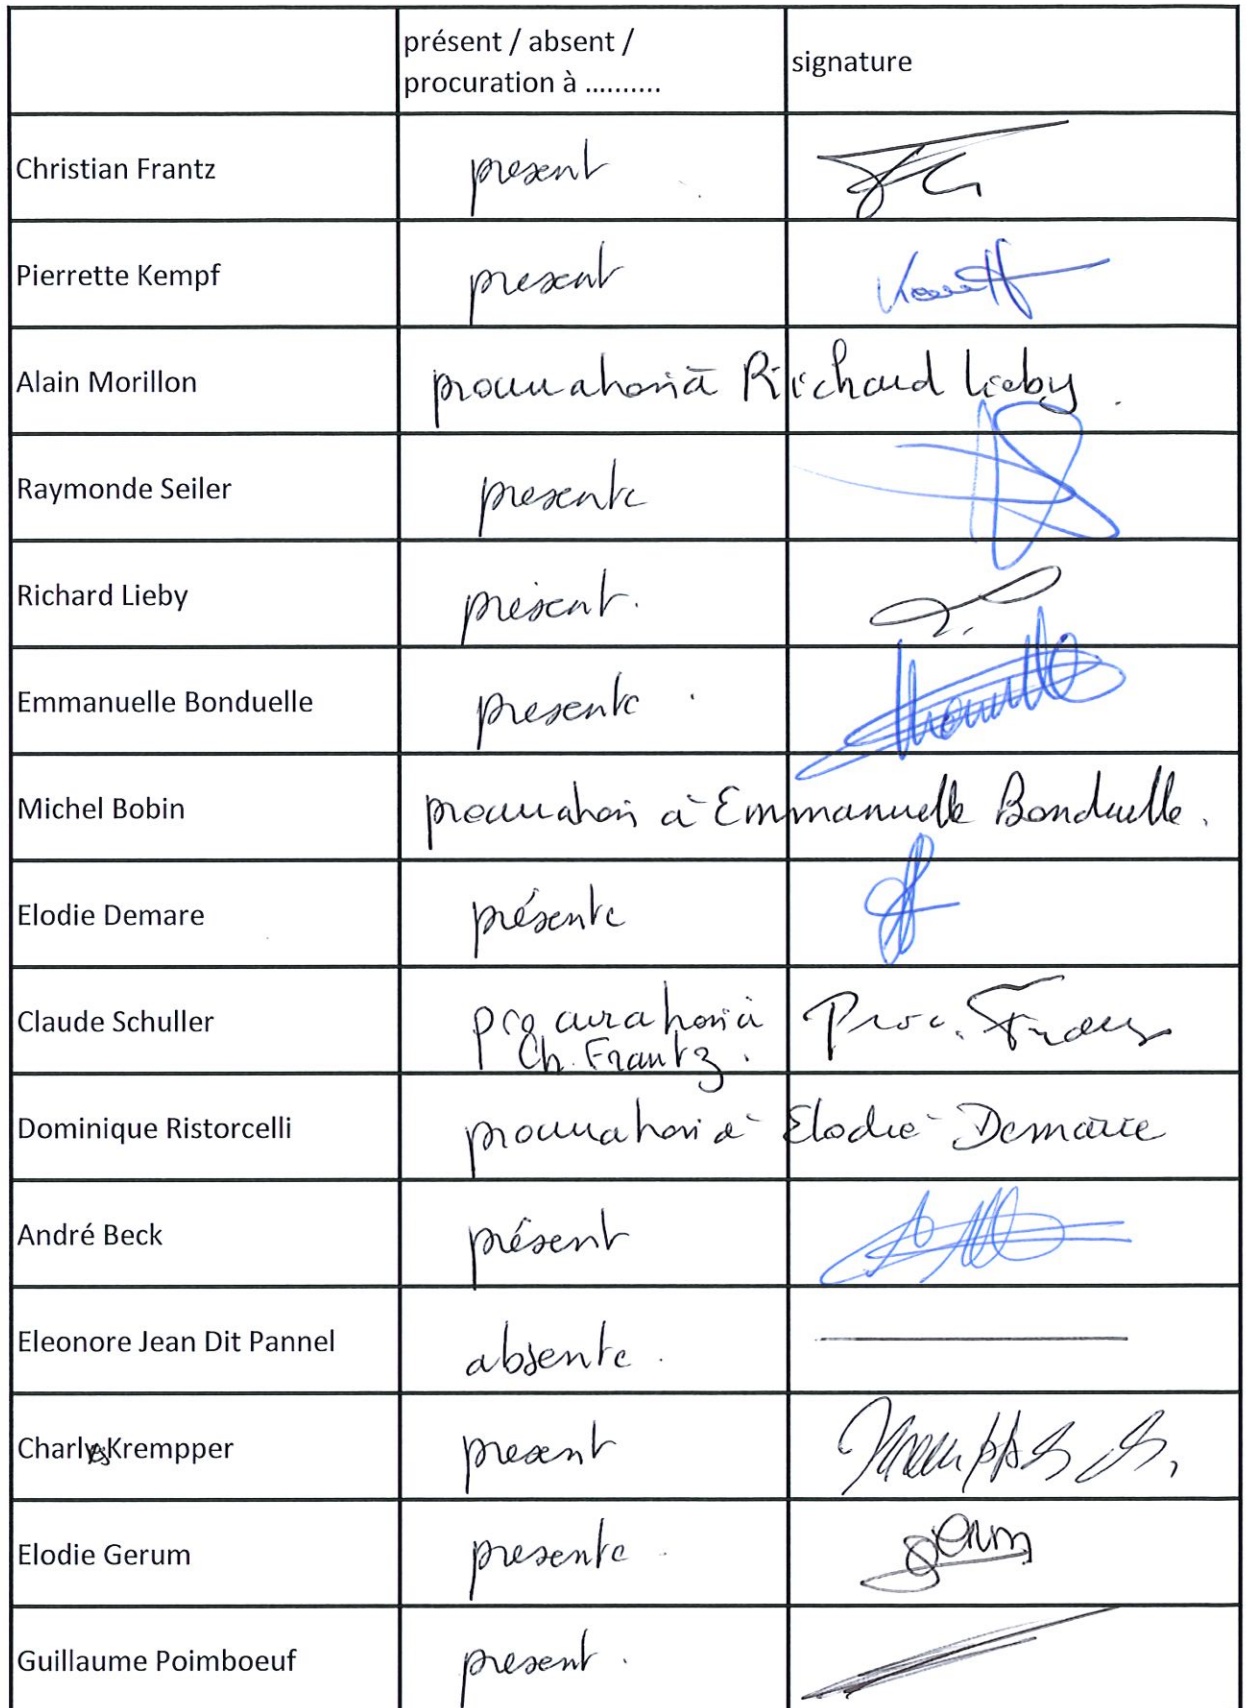 présent / absent /
procuration à ..........
signature
Christian Frantz present
Pierrette Kempf present
Alain Morillon procuration à Richard Lieby.
Raymonde Seiler presente
Richard Lieby présent.
Emmanuelle Bonduelle presente.
Michel Bobin procuration à Emmanuelle Bonduelle.
Elodie Demare présente
Claude Schuller procuration à Proc. Frantz
Ch. Frantz.
Dominique Ristorcelli procuration à Elodie Demare
André Beck présent
Eleonore Jean Dit Pannel absente.
Charles Krempper present
Elodie Gerum presente. Gerum
Guillaume Poimboeuf present.